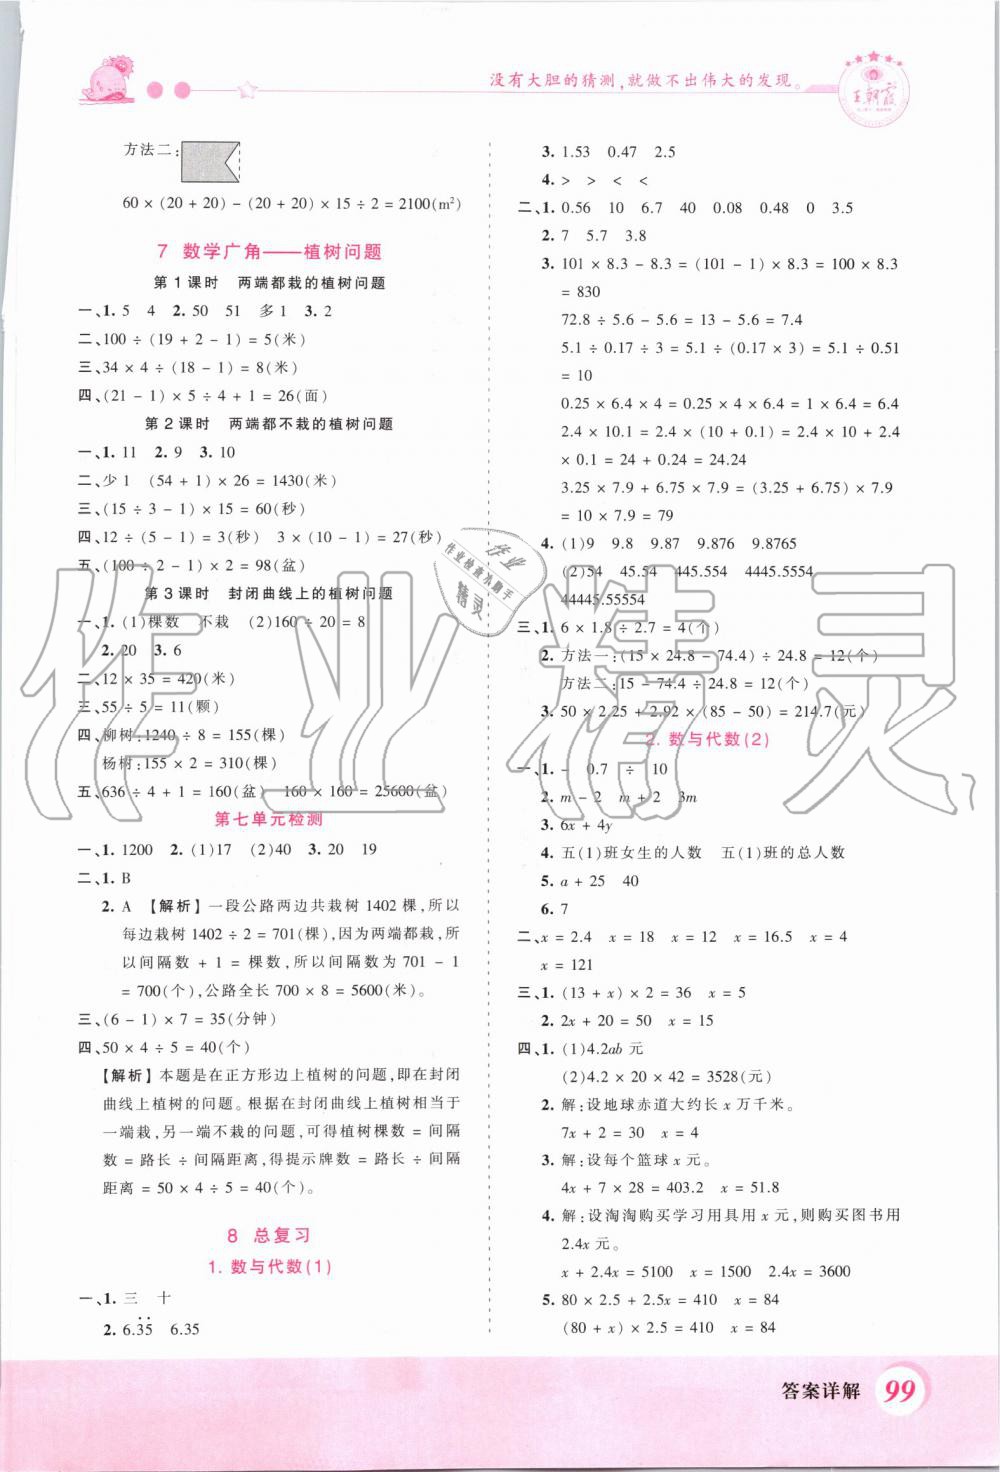 没有大胆的猜测,就做不出伟大的发现。
王朝霞
方法二:
60 × (20 + 20) − (20 + 20) × 15 ÷ 2 = 2100(m²)
7 数学广角——植树问题
第 1 课时 两端都栽的植树问题
一、1. 5 4 2. 50 51 多 1 3. 2
二、100 ÷ (19 + 2 − 1) = 5(米)
三、34 × 4 ÷ (18 − 1) = 8(米)
四、(21 − 1) × 5 ÷ 4 + 1 = 26(面)
第 2 课时 两端都不栽的植树问题
一、1. 11 2. 9 3. 10
二、少 1 (54 + 1) × 26 = 1430(米)
三、(15 ÷ 3 − 1) × 15 = 60(秒)
四、12 ÷ (5 − 1) = 3(秒) 3 × (10 − 1) = 27(秒)
五、(100 ÷ 2 − 1) × 2 = 98(盆)
第 3 课时 封闭曲线上的植树问题
一、1. (1)棵数 不栽 (2)160 ÷ 20 = 8
2. 20 3. 6
二、12 × 35 = 420(米)
三、55 ÷ 5 = 11(颗)
四、柳树:1240 ÷ 8 = 155(棵)
杨树:155 × 2 = 310(棵)
五、636 ÷ 4 + 1 = 160(盆) 160 × 160 = 25600(盆)
第七单元检测
一、1. 1200 2. (1)17 (2)40 3. 20 19
二、1. B
2. A 【解析】一段公路两边共栽树 1402 棵,所以
每边栽树 1402 ÷ 2 = 701(棵),因为两端都栽,所
以间隔数 + 1 = 棵数,所以间隔数为 701 − 1
= 700(个),公路全长 700 × 8 = 5600(米)。
三、(6 − 1) × 7 = 35(分钟)
四、50 × 4 ÷ 5 = 40(个)
【解析】本题是在正方形边上植树的问题,即在封闭
曲线上植树的问题。根据在封闭曲线上植树相当于
一端栽,另一端不栽的问题,可得植树棵数 = 间隔
数 = 路长 ÷ 间隔距离,得提示牌数 = 路长 ÷ 间隔
距离 = 50 × 4 ÷ 5 = 40(个)。
8 总复习
1. 数与代数(1)
一、1. 三 十
2. 6.3̇5̇ 6.35
3. 1.53 0.47 2.5
4. > > < <
二、1. 0.56 10 6.7 40 0.08 0.48 0 3.5
2. 7 5.7 3.8
3. 101 × 8.3 − 8.3 = (101 − 1) × 8.3 = 100 × 8.3
= 830
72.8 ÷ 5.6 − 5.6 = 13 − 5.6 = 7.4
5.1 ÷ 0.17 ÷ 3 = 5.1 ÷ (0.17 × 3) = 5.1 ÷ 0.51
= 10
0.25 × 6.4 × 4 = 0.25 × 4 × 6.4 = 1 × 6.4 = 6.4
2.4 × 10.1 = 2.4 × (10 + 0.1) = 2.4 × 10 + 2.4
× 0.1 = 24 + 0.24 = 24.24
3.25 × 7.9 + 6.75 × 7.9 = (3.25 + 6.75) × 7.9
= 10 × 7.9 = 79
4. (1)9 9.8 9.87 9.876 9.8765
(2)54 45.54 445.554 4445.5554
44445.55554
三、1. 6 × 1.8 ÷ 2.7 = 4(个)
2. 方法一:(15 × 24.8 − 74.4) ÷ 24.8 = 12(个)
方法二:15 − 74.4 ÷ 24.8 = 12(个)
3. 50 × 2.25 + 2.92 × (85 − 50) = 214.7(元)
2. 数与代数(2)
一、1. − 0.7 ÷ 10
2. m − 2 m + 2 3m
3. 6x + 4y
4. 五(1)班女生的人数 五(1)班的总人数
5. a + 25 40
6. 7
二、x = 2.4 x = 18 x = 12 x = 16.5 x = 4
x = 121
三、1. (13 + x) × 2 = 36 x = 5
2. 2x + 20 = 50 x = 15
四、1. (1)4.2ab 元
(2)4.2 × 20 × 42 = 3528(元)
2. 解:设地球赤道大约长 x 万千米。
7x + 2 = 30 x = 4
3. 解:设每个篮球 x 元。
4x + 7 × 28 = 403.2 x = 51.8
4. 解:设淘淘购买学习用具用 x 元,则购买图书用
2.4x 元。
x + 2.4x = 5100 x = 1500 2.4x = 3600
5. 80 × 2.5 + 2.5x = 410 x = 84
(80 + x) × 2.5 = 410 x = 84
作业精灵
作业
作业检查小助手
精灵
答案详解 99